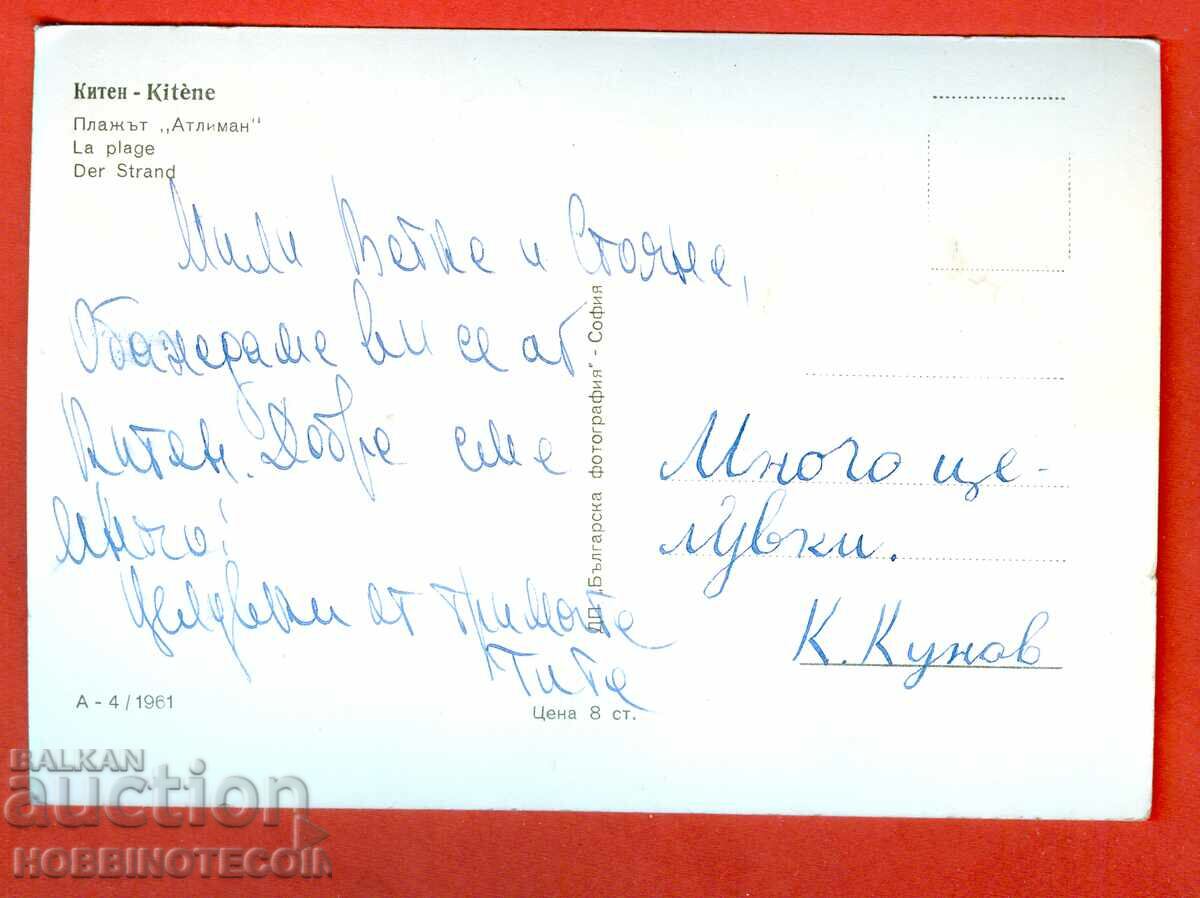 Китен - Kitène
Плажът „Атлиман"
La plage
Der Strand
Мили Ветке и Стояне,
Обаждаме ви се от
Китен. Добре сме
много!
Целувки от тримата
Много це-
лувки.
К. Кунов
ДП „Българска фотография" - София
А - 4 / 1961
Цена 8 ст.
BALKAN
auction
HOBBINOTECOIN